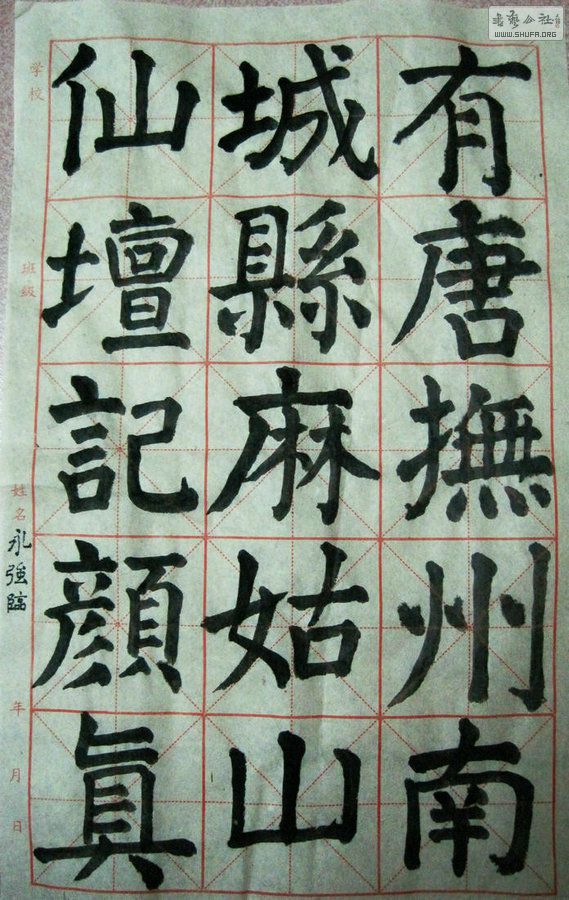 有唐撫州南
城縣麻姑山
仙壇記顏眞
学校
班級
姓名 永強臨
年 月 日
书艺公社
WWW.SHUFA.ORG